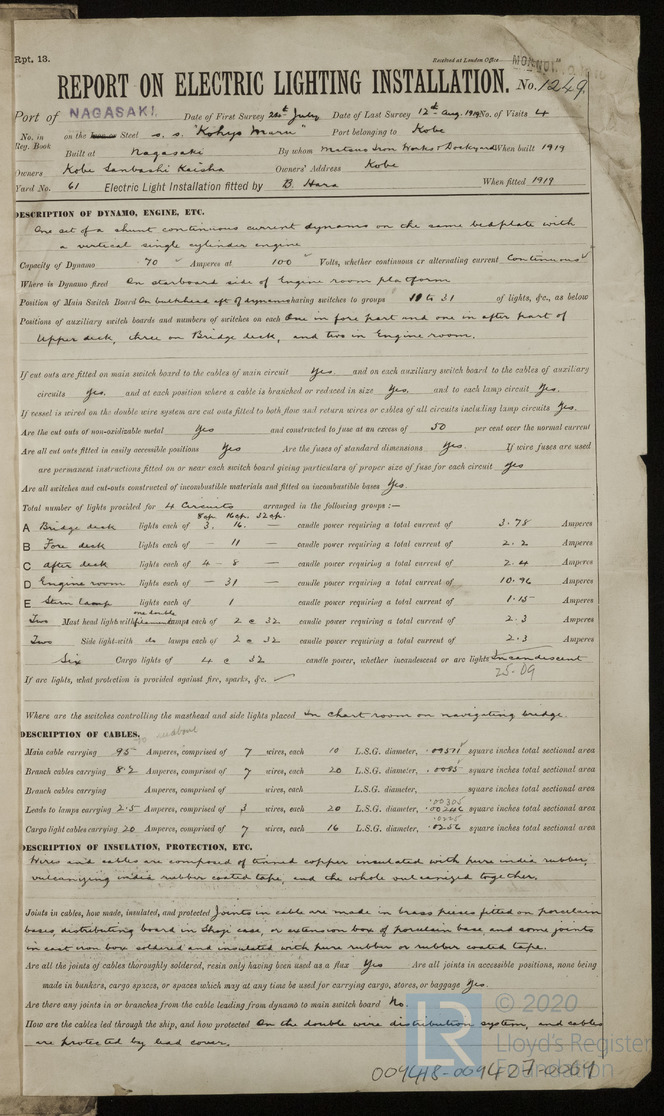 Rpt. 13.
Received at London Office
REPORT ON ELECTRIC LIGHTING INSTALLATION. No. 1249.
Port of NAGASAKI. Date of First Survey July Date of Last Survey 12th Aug. 1919 No. of Visits 4
No. in Reg. Book on the Iron or Steel s. s. "Kohyo Maru" Port belonging to Kobe
Built at Nagasaki By whom Matsuo Iron Works & Dockyard When built 1919
Owners Kobe Sanbashi Kaisha Owners' Address Kobe
Yard No. 61 Electric Light Installation fitted by B. Hara When fitted 1919
DESCRIPTION OF DYNAMO, ENGINE, ETC.
One set of a shunt continuous current dynamo on the same bedplate with
a vertical single cylinder engine
Capacity of Dynamo 70 Amperes at 100 Volts, whether continuous or alternating current Continuous
Where is Dynamo fixed On starboard side of Engine room platform
Position of Main Switch Board On bulkhead aft of dynamo having switches to groups 10 to 31 of lights, &c., as below
Positions of auxiliary switch boards and numbers of switches on each One in fore part and one in after part of
Upper deck, three on Bridge deck, and two in Engine room.
If cut outs are fitted on main switch board to the cables of main circuit Yes. and on each auxiliary switch board to the cables of auxiliary
circuits Yes. and at each position where a cable is branched or reduced in size Yes. and to each lamp circuit Yes.
If vessel is wired on the double wire system are cut outs fitted to both flow and return wires or cables of all circuits including lamp circuits Yes.
Are the cut outs of non-oxidizable metal Yes and constructed to fuse at an excess of 50 per cent over the normal current
Are all cut outs fitted in easily accessible positions Yes Are the fuses of standard dimensions Yes. If wire fuses are used
are permanent instructions fitted on or near each switch board giving particulars of proper size of fuse for each circuit Yes
Are all switches and cut-outs constructed of incombustible materials and fitted on incombustible bases Yes.
Total number of lights provided for 4 Circuits arranged in the following groups :—
8cp. 16cp. 32cp.
A Bridge deck lights each of 3. 16. — candle power requiring a total current of 3.78 Amperes
B Fore deck lights each of — 11 — candle power requiring a total current of 2.2 Amperes
C After deck lights each of 4 - 8 — candle power requiring a total current of 2.4 Amperes
D Engine room lights each of — 31 — candle power requiring a total current of 10.96 Amperes
E Stern lamp lights each of 1 candle power requiring a total current of 1.15 Amperes
Two Mast head light with one double filament lamps each of 2 c 32 candle power requiring a total current of 2.3 Amperes
Two Side light with do lamps each of 2 c 32 candle power requiring a total current of 2.3 Amperes
Six Cargo lights of 4 c 32 candle power, whether incandescent or arc lights Incandescent
25.09
If arc lights, what protection is provided against fire, sparks, &c. ✓
Where are the switches controlling the masthead and side lights placed In chart room on navigating bridge.
DESCRIPTION OF CABLES.
Main cable carrying 95 Amperes, comprised of 7 wires, each 10 L.S.G. diameter, .09511 square inches total sectional area
Branch cables carrying 8.2 Amperes, comprised of 7 wires, each 20 L.S.G. diameter, .0085 square inches total sectional area
Branch cables carrying Amperes, comprised of wires, each L.S.G. diameter, square inches total sectional area
.00305
Leads to lamps carrying 2.5 Amperes, comprised of 3 wires, each 20 L.S.G. diameter, .00246 square inches total sectional area
.0225
Cargo light cables carrying 20 Amperes, comprised of 7 wires, each 16 L.S.G. diameter, .0256 square inches total sectional area
DESCRIPTION OF INSULATION, PROTECTION, ETC.
Wires and cables are composed of tinned copper insulated with pure india rubber,
vulcanizing india rubber coated tape, and the whole vulcanized together.
Joints in cables, how made, insulated, and protected Joints in cable are made in brass pieces fitted on porcelain
bases, distributing board in Shoji case, or extension box of porcelain base and some joints
in cast iron box soldered and insulated with pure rubber or rubber coated tape.
Are all the joints of cables thoroughly soldered, resin only having been used as a flux Yes Are all joints in accessible positions, none being
made in bunkers, cargo spaces, or spaces which may at any time be used for carrying cargo, stores, or baggage Yes.
Are there any joints in or branches from the cable leading from dynamo to main switch board No.
How are the cables led through the ship, and how protected On the double wire distribution system, and cables
are protected by lead cover.
© 2020
Lloyd's Register
Foundation
LR
009418-009427-0069